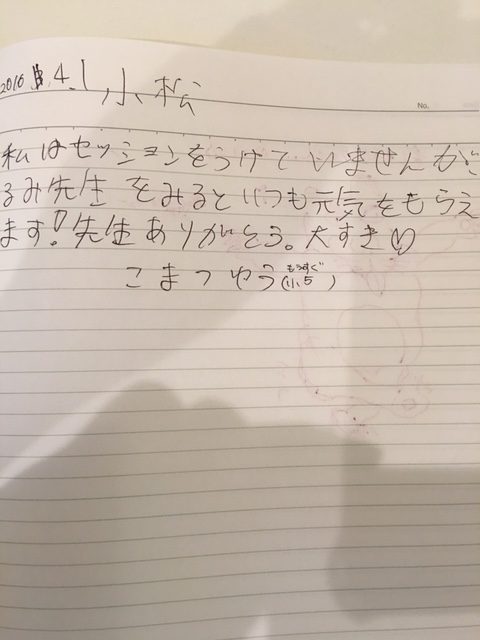 2016 4.1, 小松
No.
私はセッションをうけていませんが
るみ先生をみるといつも元気をもらえ
ます!先生ありがとう。大すき♡
こまつゆう(もうすぐ小5)